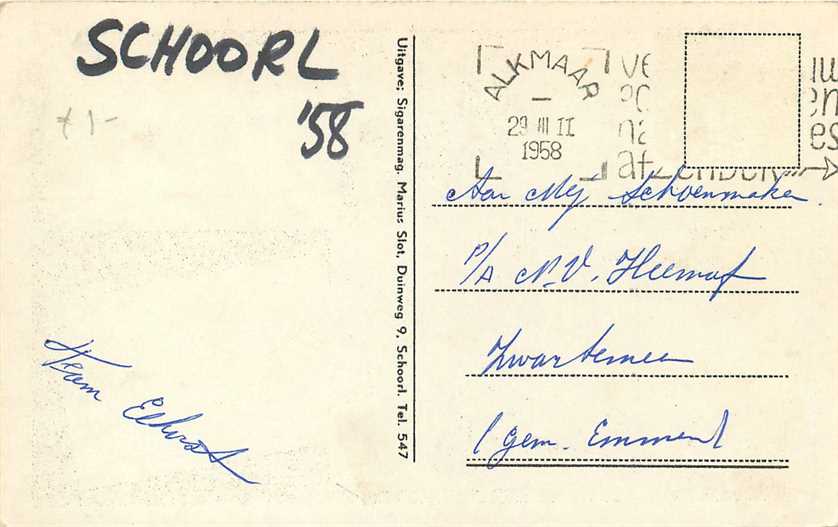 SCHOORL
'58
+ 1-
Uitgave; Sigarenmag. Marius Slot, Duinweg 9, Schoorl. Tel. 547
ALKMAAR
29 III II
1958
Aan Mej Schoenmaker.
P/A N.V. Heemaf
Zwartemeer
(gem. Emmen)
Team Elhorst